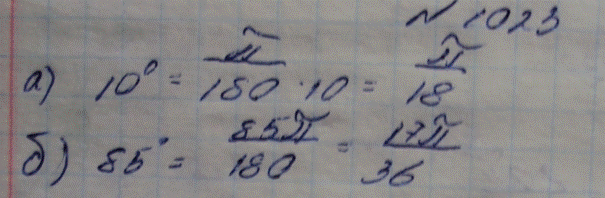 № 1023
а) 10° = π/180 · 10 = π/18
б) 85° = 85π/180 = 17π/36